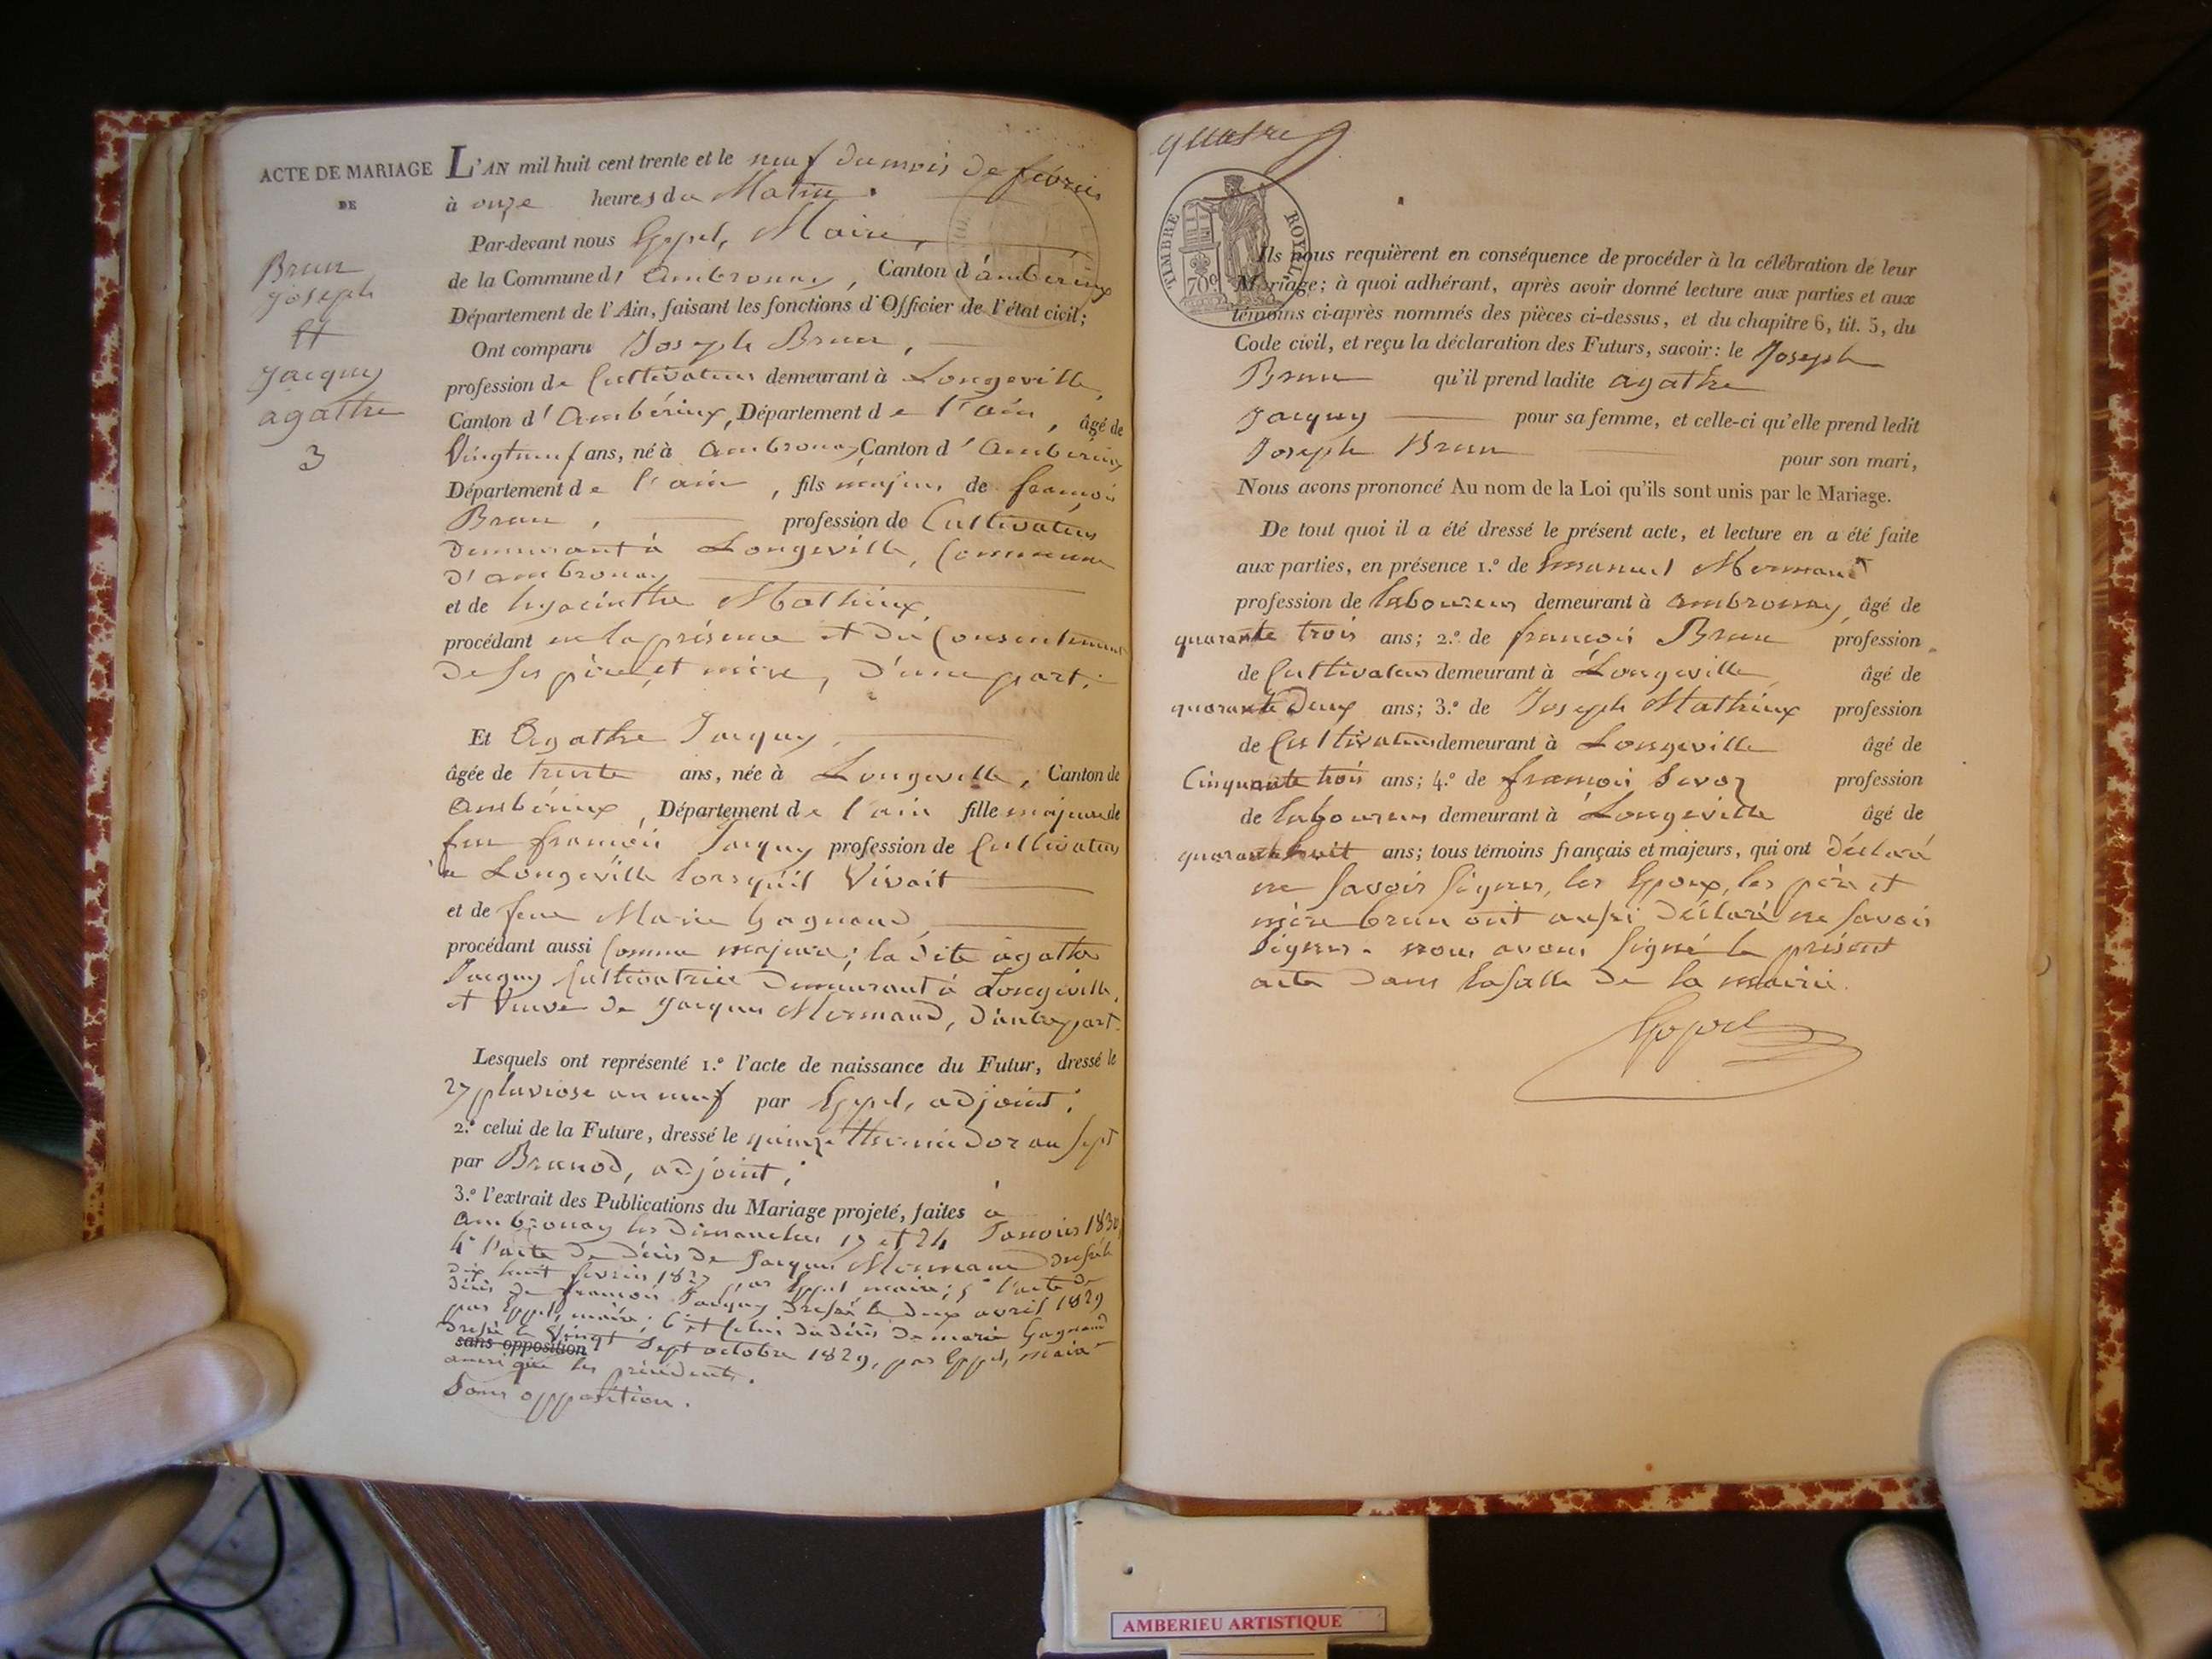 ACTE DE MARIAGE
DE
Brun
Joseph
Et
Jacquy
agathe
3
L'AN mil huit cent trente et le neuf du mois de février
à onze heures du Matin.
Par-devant nous Eppel, Maire,
de la Commune d'Ambronay, Canton d'ambérieux
Département de l'Ain, faisant les fonctions d'Officier de l'état civil;
Ont comparu Joseph Brun,
profession de Cultivateur demeurant à Longeville,
Canton d'Ambérieux, Département de l'ain, âgé de
Vingtneuf ans, né à Ambronay Canton d'Ambérieux
Département de l'ain, fils majeur de françois
Brun, profession de Cultivateur
demeurant à Longeville, Commune
d'ambronay
et de hyacinthe Mathieux,
procédant en la présence et du Consentement
de ses père et mère, d'une part.
Et Agathe Jacquy,
âgée de trente ans, née à Longeville, Canton de
Ambérieux, Département de l'ain fille majeure de
feu françois Jacquy profession de Cultivateur
à Longeville lorsqu'il Vivait
et de feue Marie Gagnaud,
procédant aussi Comme majeure; la dite agathe
Jacquy Cultivatrice demeurant à Longeville,
et Veuve de Jacques Mermand, d'autre part.
Lesquels ont représenté 1.º l'acte de naissance du Futur, dressé le
27 pluviose an neuf par Eppel, adjoint;
2.º celui de la Future, dressé le quinze thermidor an sept
par Brunod, adjoint;
3.º l'extrait des Publications du Mariage projeté, faites à
ambronay les dimanches 17 et 24 Janvier 1830,
4º l'acte de décès de Jacques Mermand dressé le
dix huit fevrier 1827 par Eppel maire; 5º l'acte de
décès de françois Jacquy dressé le deux avril 1829
par Eppel, maire; 6º et Celui du décès de marie Gagnaud
dressé le Vingt Sept octobre 1829, par Eppel, maire
sans opposition
ainsi que les précédents.
Sans opposition.
quatre
TIMBRE ROYAL
70c
Ils nous requièrent en conséquence de procéder à la célébration de leur
Mariage; à quoi adhérant, après avoir donné lecture aux parties et aux
témoins ci-après nommés des pièces ci-dessus, et du chapitre 6, tit. 5, du
Code civil, et reçu la déclaration des Futurs, savoir: le Joseph
Brun qu'il prend ladite agathe
Jacquy pour sa femme, et celle-ci qu'elle prend ledit
Joseph Brun pour son mari,
Nous avons prononcé Au nom de la Loi qu'ils sont unis par le Mariage.
De tout quoi il a été dressé le présent acte, et lecture en a été faite
aux parties, en présence 1.º de Emanuel Mermand
profession de laboureur demeurant à ambronay, âgé de
quarante trois ans; 2.º de françois Brun profession
de Cultivateur demeurant à Longeville, âgé de
quarante deux ans; 3.º de Joseph Mathieux profession
de Cultivateur demeurant à Longeville âgé de
Cinquante trois ans; 4.º de françois Savoz profession
de laboureur demeurant à Longeville âgé de
quarante huit ans; tous témoins français et majeurs, qui ont déclaré
ne savoir signer, les Epoux, les père et
mère brun ont aussi déclaré ne savoir
signer. nous avons signé le présent
acte dans la salle de la mairie.
Eppel
AMBERIEU ARTISTIQUE